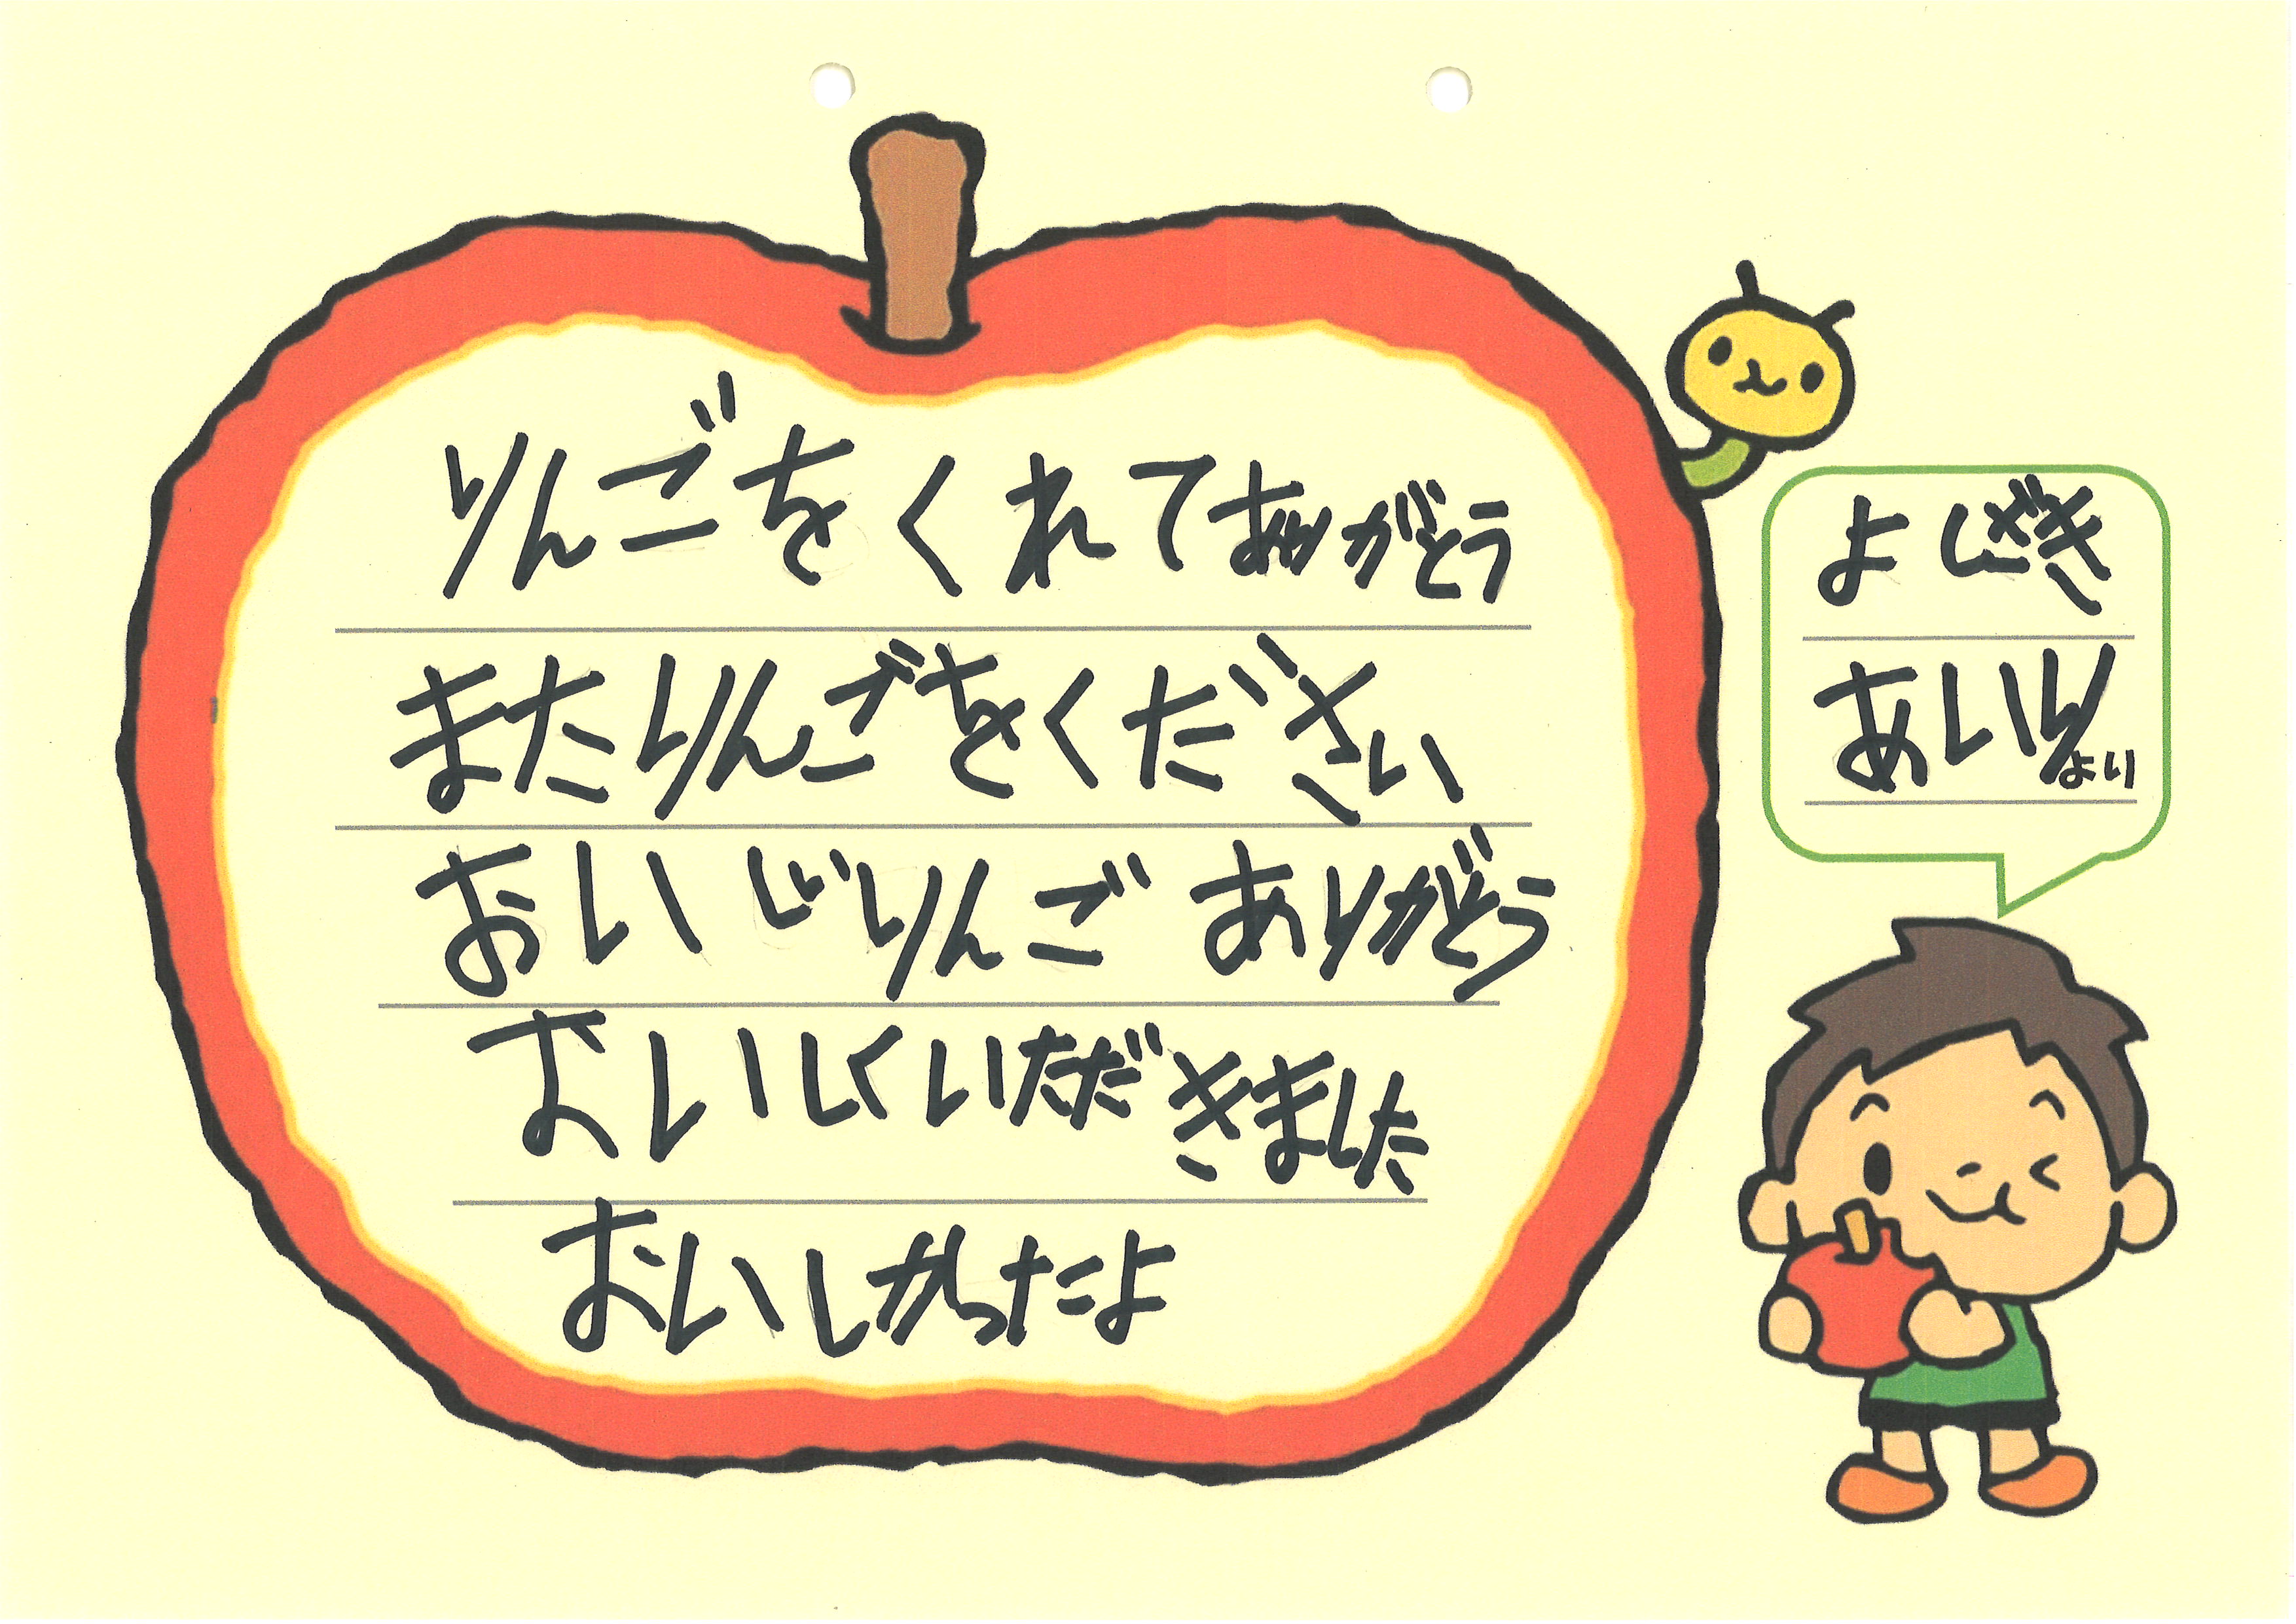 りんごをくれてありがとう
またりんごをください
おいじりんごありがとう
おいしくいただきました
おいしかったよ
よしざき
あいり
より